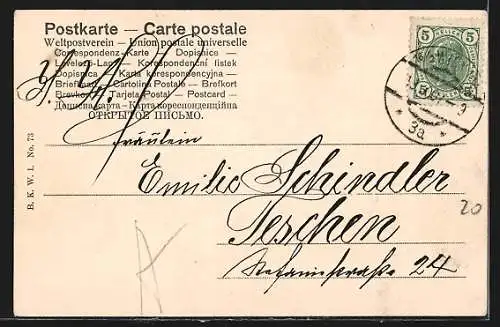 Postkarte — Carte postale
Weltpostverein — Union postale universelle
Correspondenz-Karte — Dopisnice —
Levelező-Lap — Korespondenční lístek
Dopisnica — Karta korespondencyjna —
Briefkaart — Cartolina Postale — Brofkort
Brevkort — Tarjeta Postal — Postcard —
ОТКРЫТОЕ ПИСЬМО.
5
5
5
5
3a
B. K. W. I. No. 73
Fräulein
Emilie Schindler
Teschen
Stefaniestraße 24
20